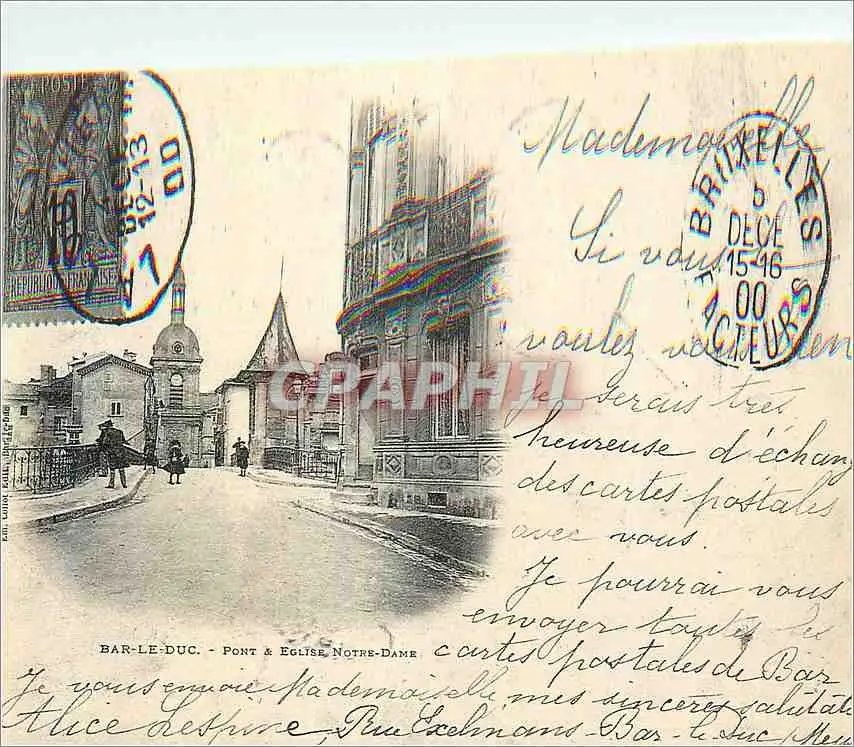 POSTE
10
REPUBLIQUE FRANÇAISE
12-13
00
BRUXELLES
5
DECE
15-16
00
FACTEURS
Mademoiselle,
Si vous
voulez
Je serais très
heureuse d'échang
des cartes postales
avec vous.
Je pourrai vous
envoyer toutes les
cartes postales de Bar
CARTAPHIL
BAR-LE-DUC. - PONT & EGLISE NOTRE-DAME
Je vous envoie Mademoiselle, mes sincères salutati
Alice Lespine, Rue Exelmans - Bar-le-Duc (Meu